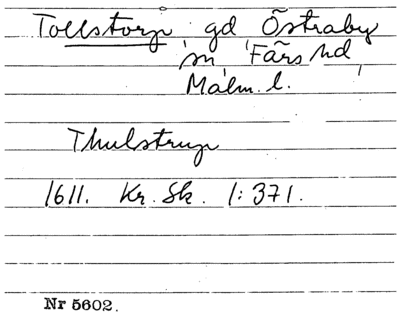 Tollstorp, gd Östraby
sn Färs hd
Malm. l.
Thulstrup
1611. Kr. Sk. 1:371.
Nr 5602.